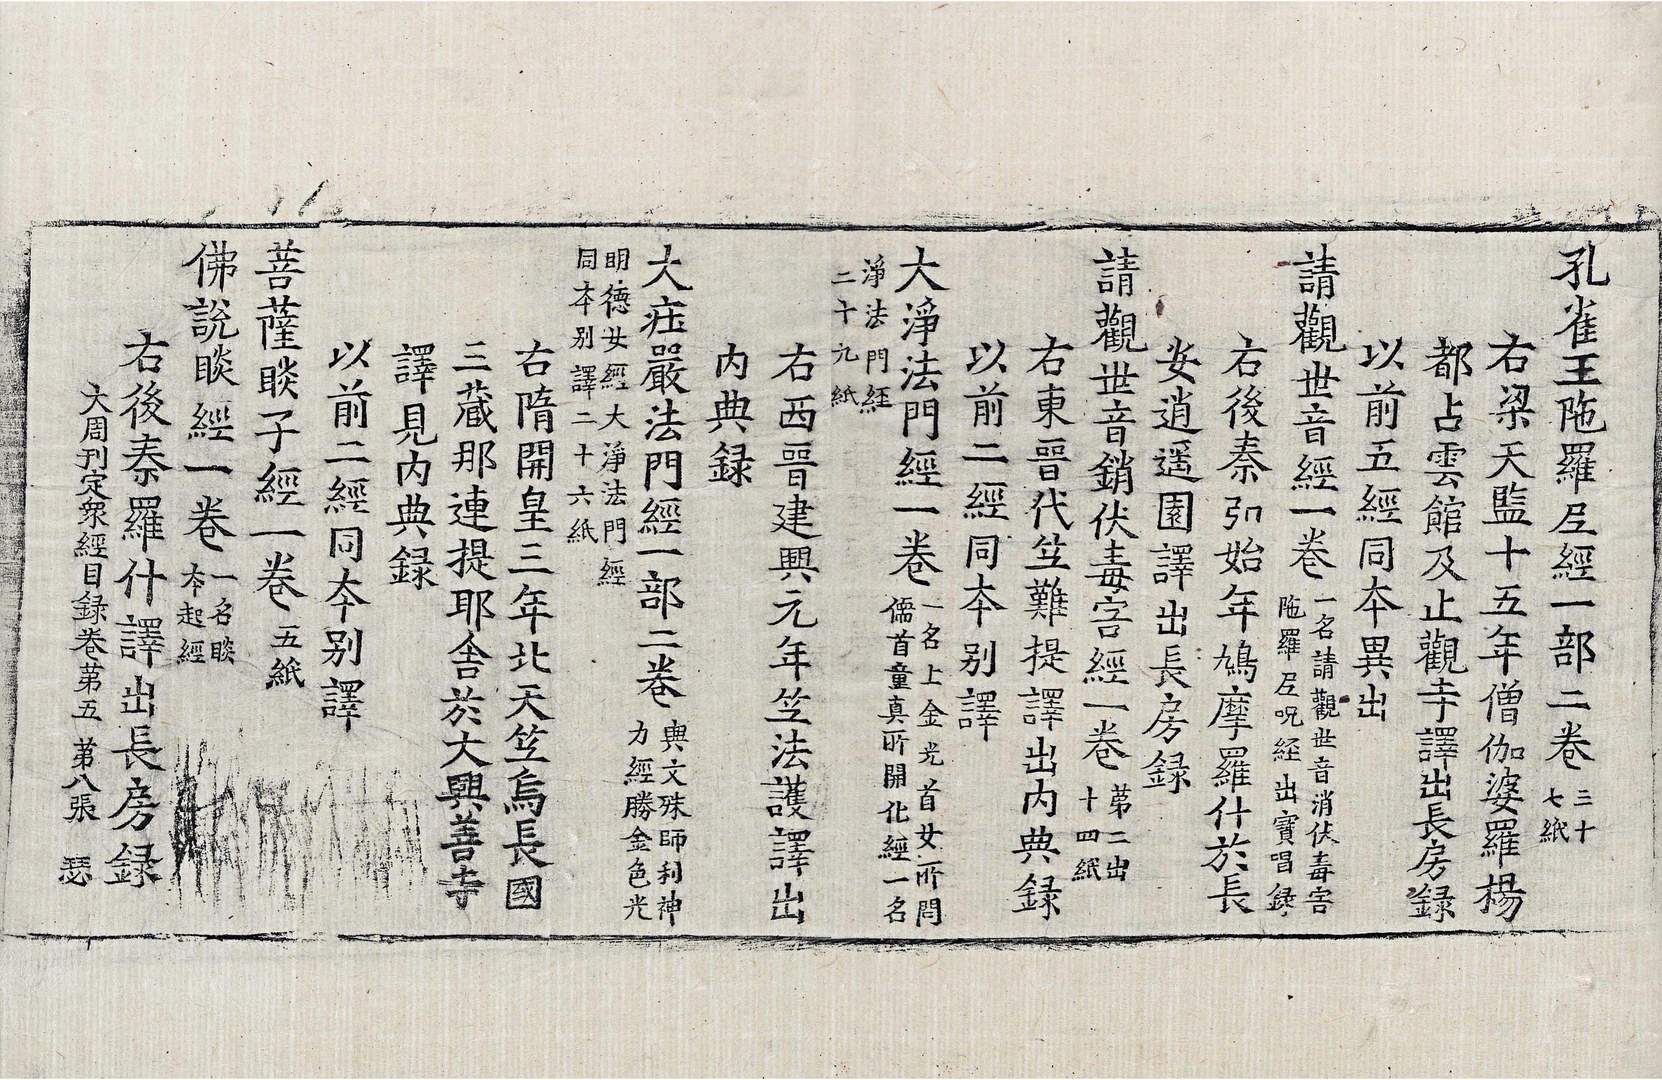 孔雀王陁羅𡰱經一部二卷三十七紙
右梁天監十五年僧伽婆羅楊
都占雲館及止觀寺譯出長房録
以前五經同本異出
請觀世音經一卷一名請觀世音消伏毒害陁羅𡰱呪經出寶唱録
右後秦弘始年鳩摩羅什於長
安逍遥園譯出長房録
請觀世音銷伏毒害經一卷第二出十四紙
右東晉代竺難提譯出内典録
以前二經同本別譯
大淨法門經一卷一名上金光首女所問儒首童真所開化經一名
淨法門經二十九紙
右西晉建興元年竺法護譯出
内典録
大莊嚴法門經一部二卷與文殊師利神力經勝金色光
明德女經大淨法門經同本別譯二十六紙
右隋開皇三年北天竺烏長國
三藏那連提耶舍於大興善寺
譯見内典録
以前二經同本別譯
菩薩睒子經一卷五紙
佛說睒經一卷一名睒本起經
右後秦羅什譯出長房録
大周刊定衆經目録卷第五 第八張 瑟